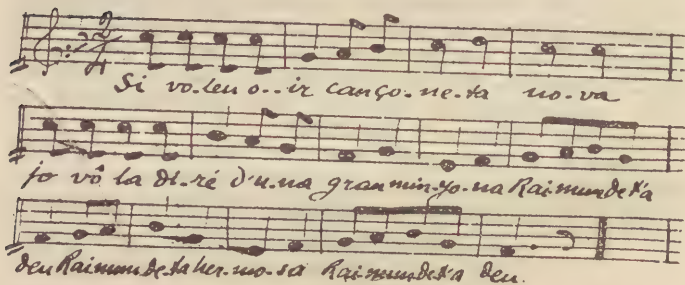 Si vo-leu o..ir canço-ne-ta no-va
jo vô la di-ré d'u-na gran min-yo-na Rai-mun-de-t'a
deu Rai-mun-de-ta her-mo-sa Rai-mun-de-t'a deu.